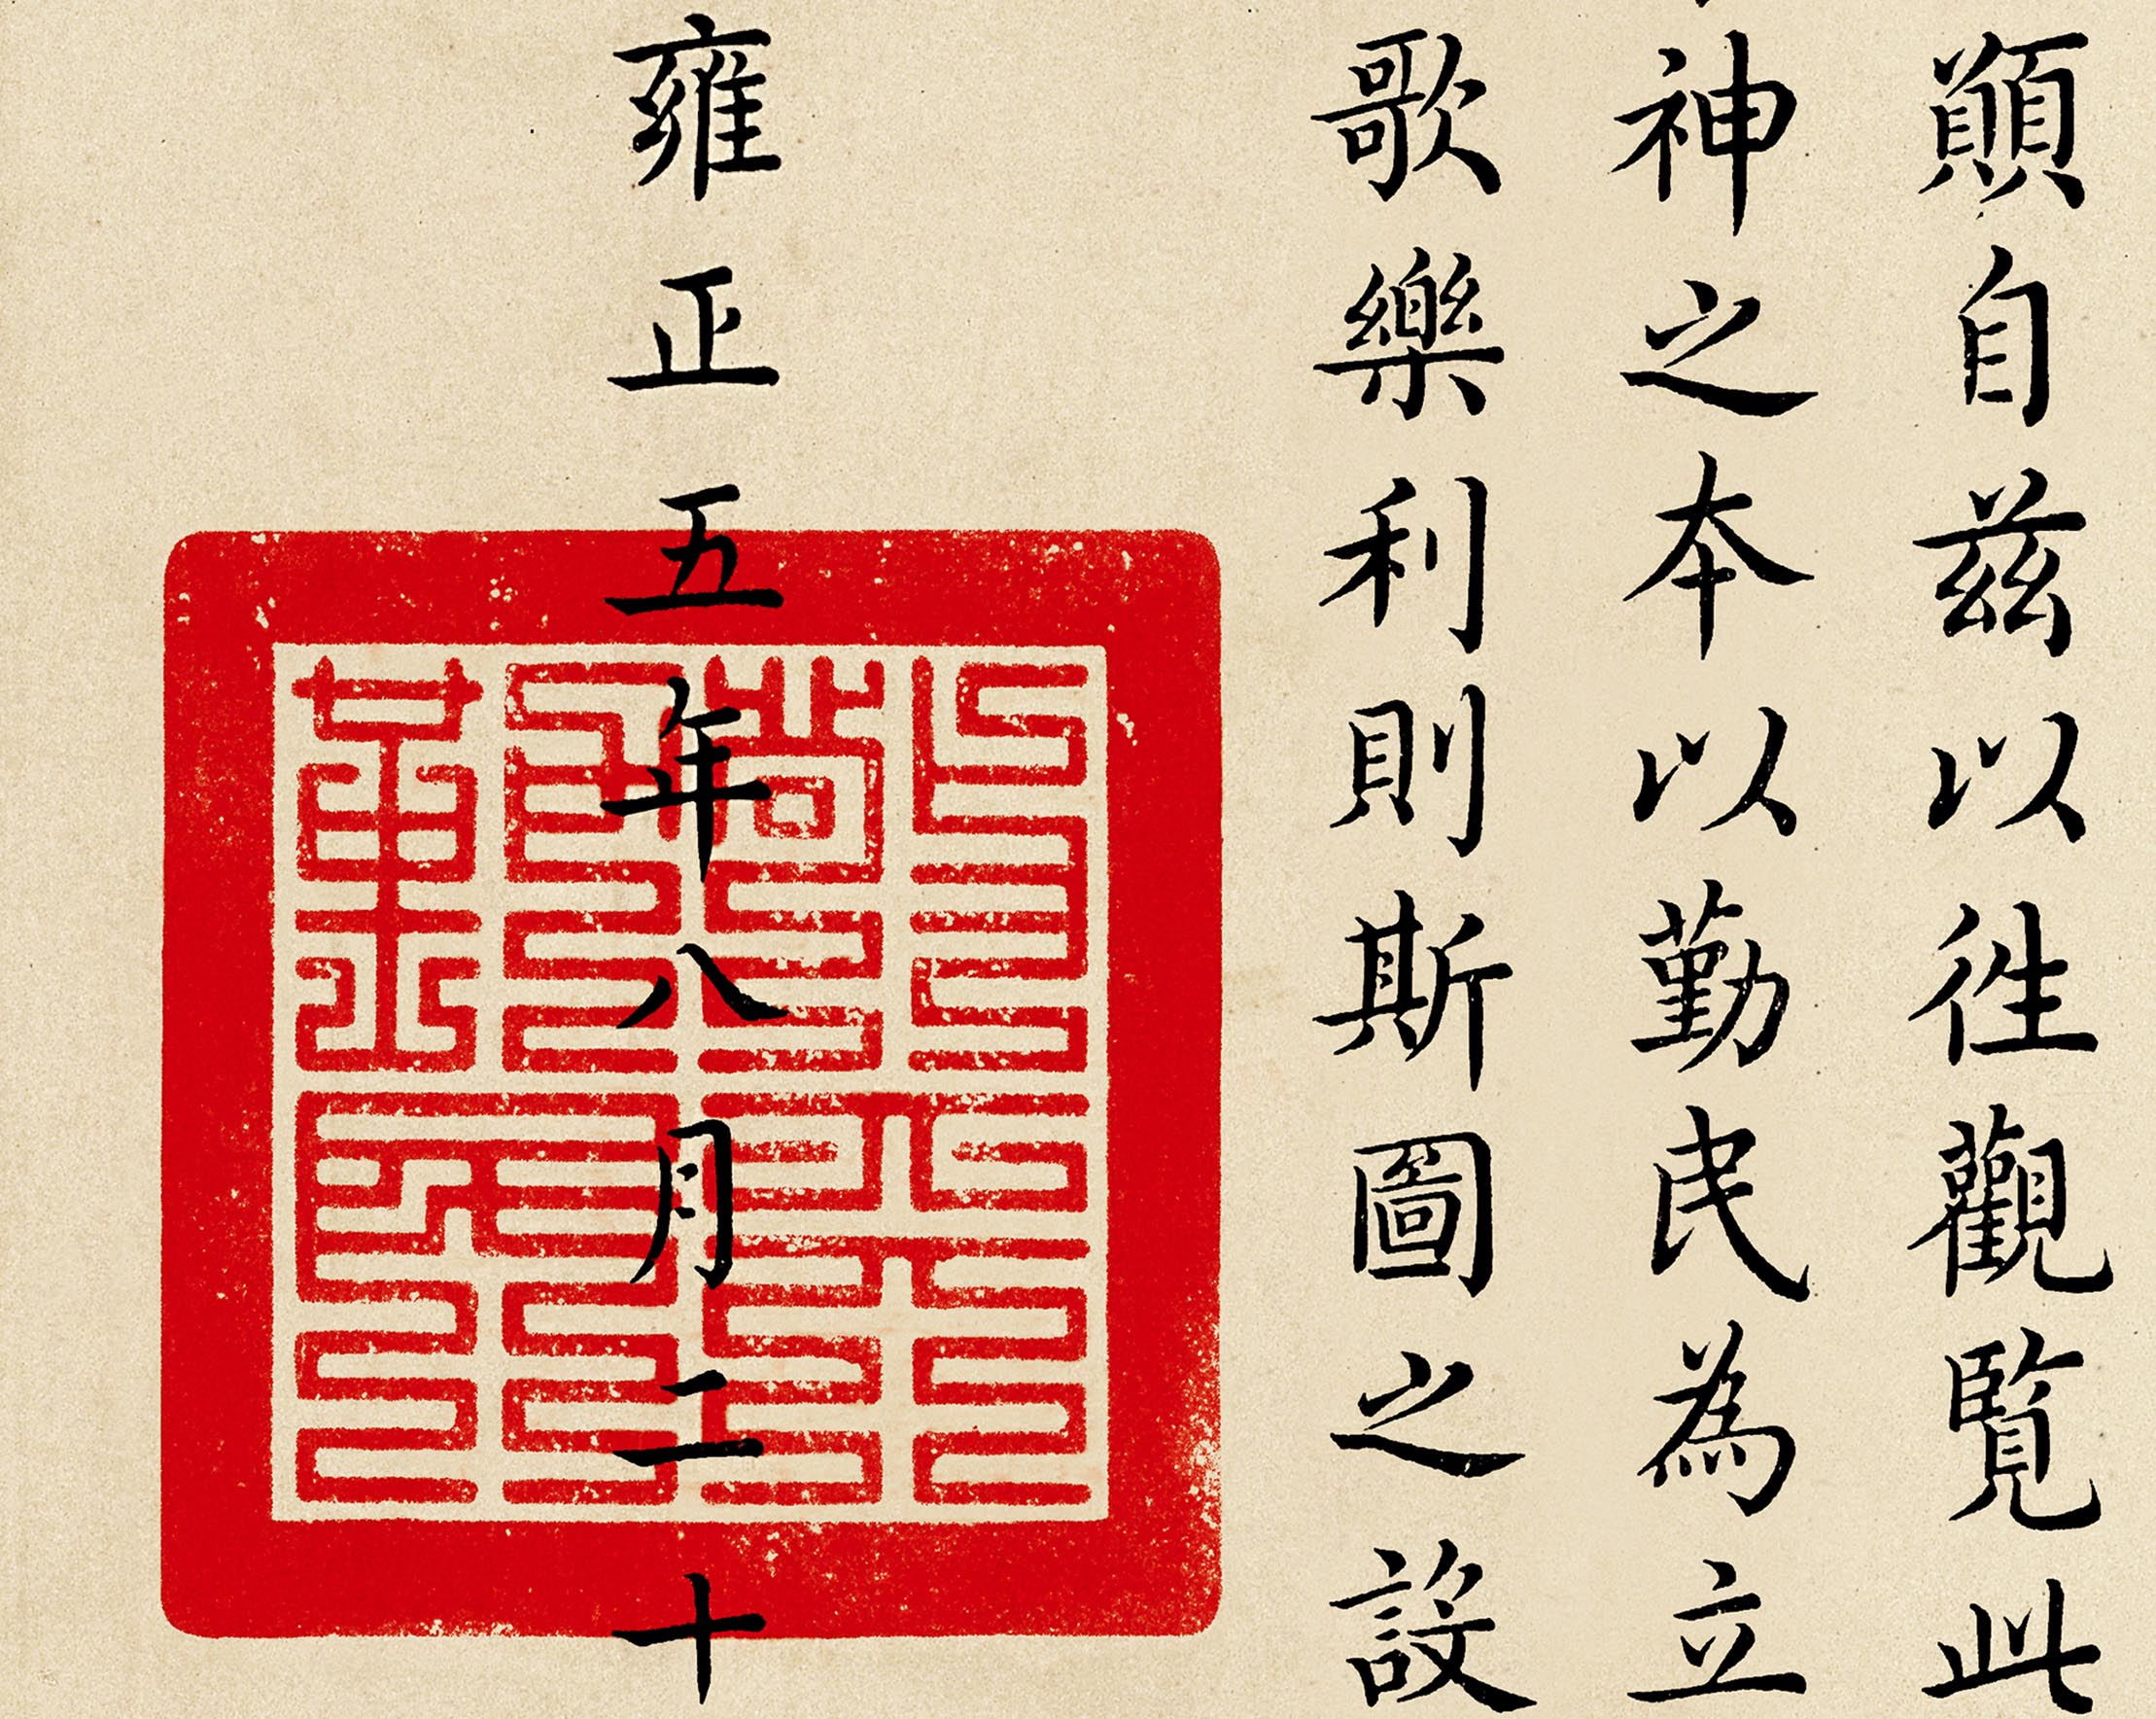 願自茲以徃觀覽此
神之本以勤民為立
歌樂利則斯圖之設
雍正五年八月二十